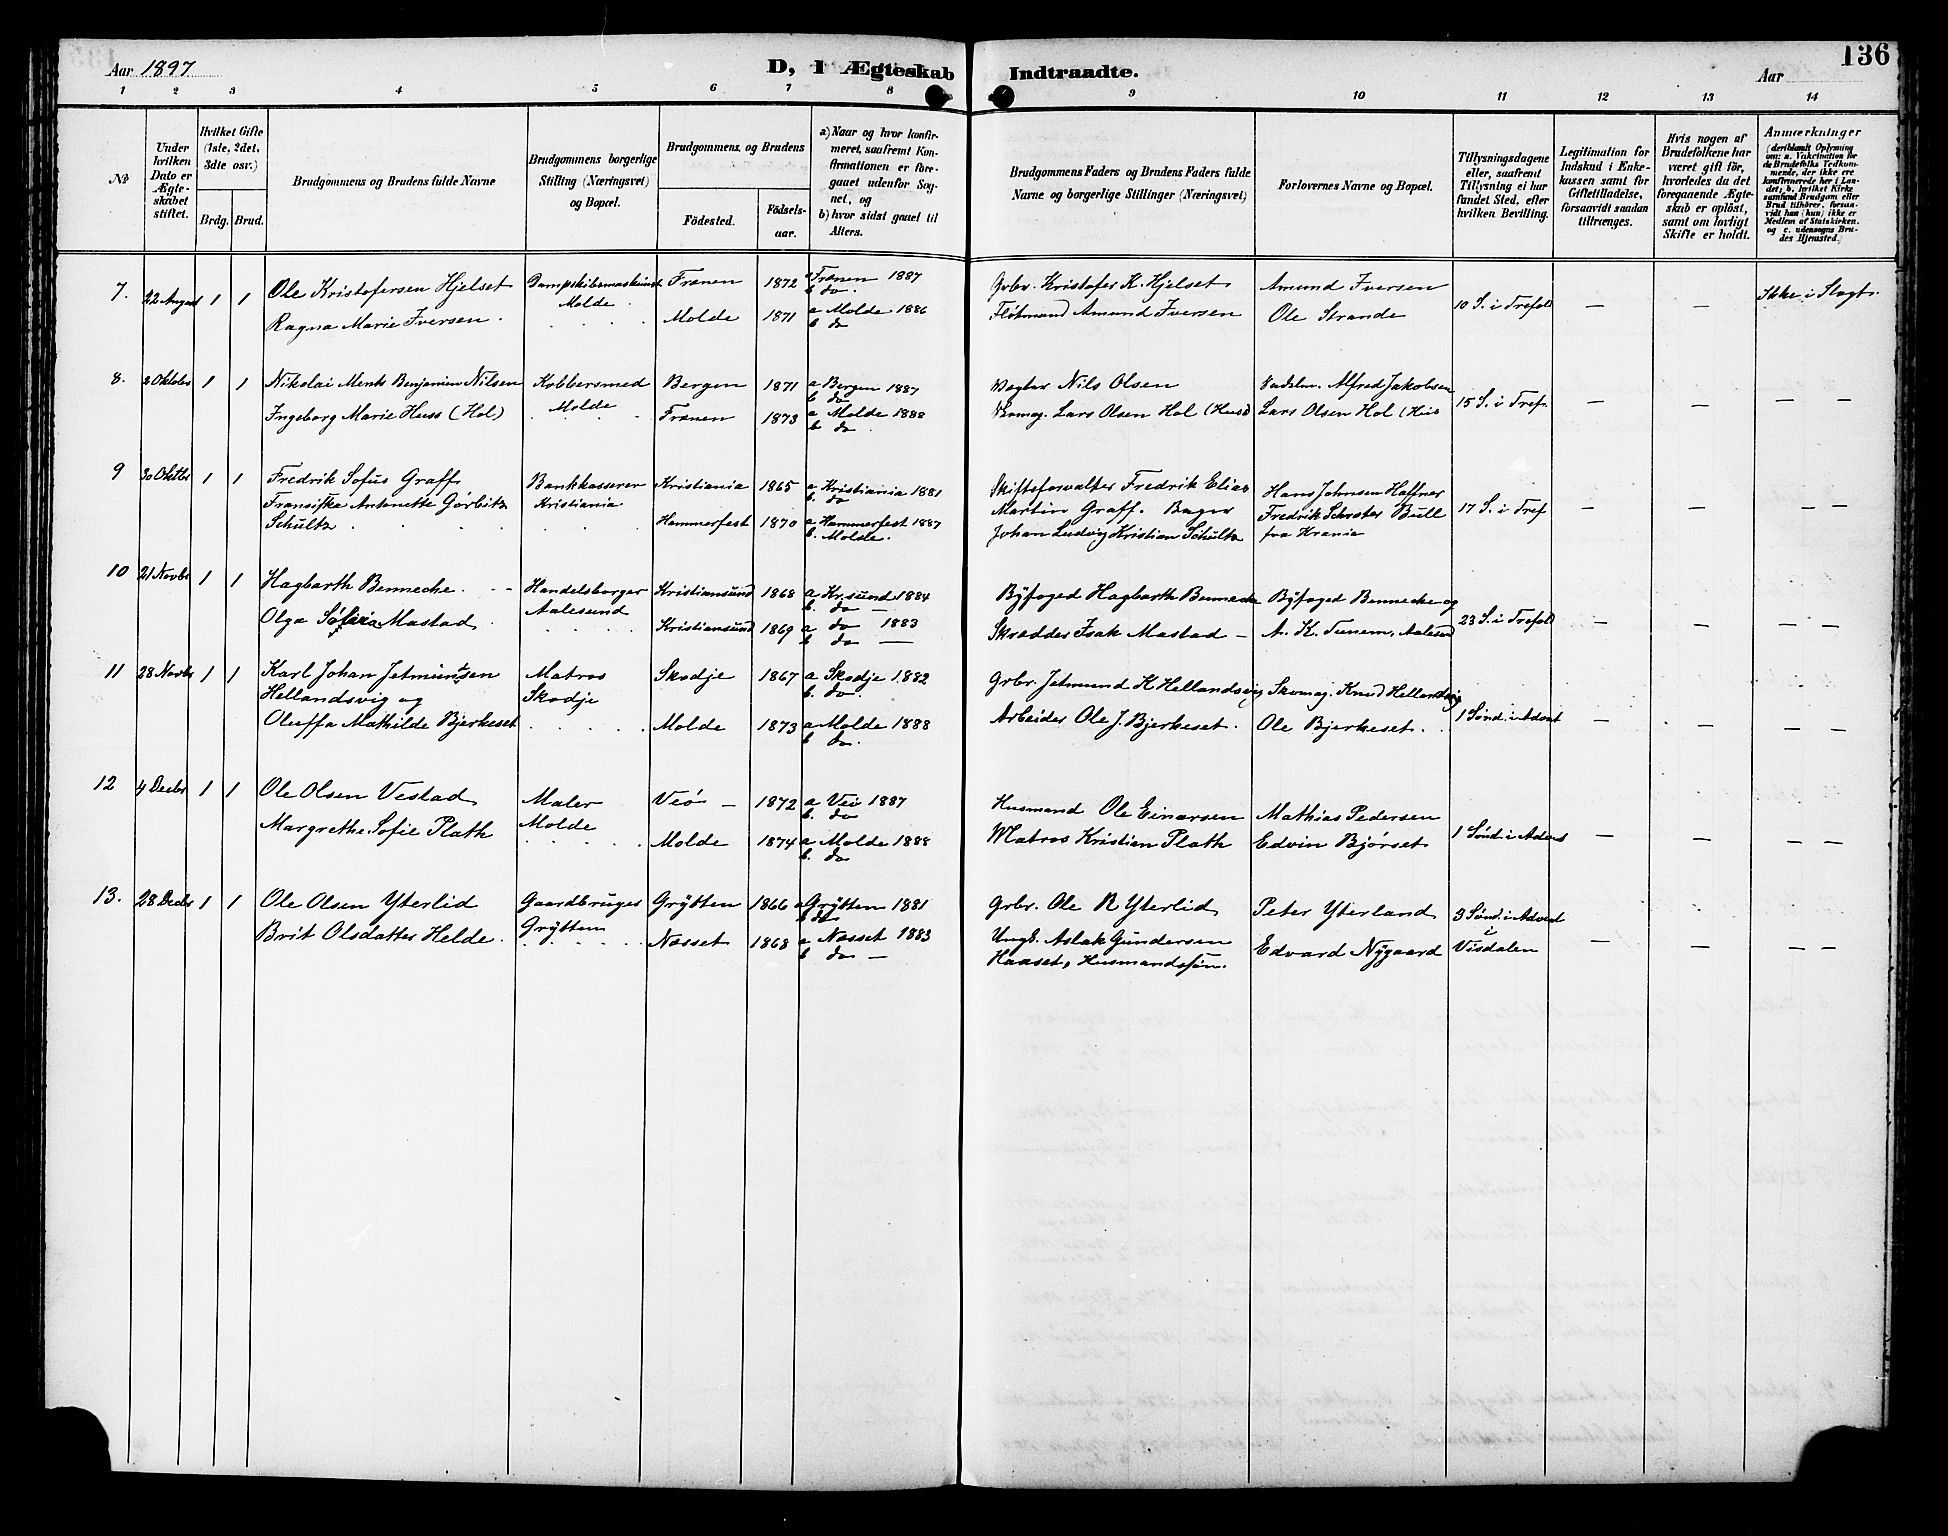 Aar 1897
D, I Ægteskab Indtraadte.
Aar
136
1 2 3 4 5 6 7 8 9 10 11 12 13 14
№
Under hvilken Dato er Ægteskabet stiftet.
Hvilket Gifte (1ste, 2det, 3die osv.)
Brdg. Brud.
Brudgommens og Brudens fulde Navne
Brudgommens borgerlige Stilling (Næringsvei) og Bopæl.
Brudgommens og Brudens
Födested.
Födselsaar.
a) Naar og hvor konfirmeret, saafremt Konfirmationen er foregaaet udenfor Sognet, og
b) hvor sidst gaaet til Alters.
Brudgommens Faders og Brudens Faders fulde Navne og borgerlige Stillinger (Næringsvei)
Forlovernes Navne og Bopæl.
Tillysningsdagene eller, saafremt Tillysning ei har fundet Sted, efter hvilken Bevilling.
Legitimation for Indskud i Enkekassen samt for Giftetilladelse, forsaavidt saadan tiltrænges.
Hvis nogen af Brudefolkene har været gift för, hvorledes da det foregaaende Ægteskab er oplöst, samt om lovligt Skifte er holdt.
Anmærkninger (deriblandt Oplysning om: a. Vakcination for de Brudefolks Vedkommende, der ikke ere konfirmerede her i Landet; b. hvilket Kirkesamfund Brudgom eller Brud tilhörer, forsaavidt han (hun) ikke er Medlem af Statskirken. og c. udensogns Brudes Hjemsted.)
7. 22 August 1 1 Ole Kristofersen Hjelset Dampskibsmaskinist Frænen 1872 a Frænen 1887 Grbr. Kristofer K. Hjelset Amund Iversen 10 S. i Trefold — — Ikke i Slegt.
Molde b do.
Ragna Marie Iversen. Molde 1871 a Molde 1886 Flötmand Amund Iversen Ole Strande
b do
8. 2 Oktober 1 1 Nikolai Ments Benjamin Nilsen Kobbersmed Bergen 1871 a Bergen 1887 Vegter Nils Olsen Alfred Jakobsen 15 S. i Tref. — — — —
Molde b do
Ingeborg Marie Huss (Hol) Frænen 1873 a Molde 1888 Skomag. Lars Olsen Hol (Huss) Lars Olsen Hol (Hus
b do.
9 30 Oktbr 1 1 Fredrik Sofus Graff Bankkasserer Kristiania 1865 a Kristiania 1881 Skifteforvalter Fredrik Elias Hans Johnsen Haffner 17 S. i Tref — — — —
Fransiska Antonette Görbitz Kristiania b. do Martin Graff. Bager Fredrik Schrøter Bull
Schultz Hammerfest 1870 a Hammerfest 1887 Johan Ludvig Kristian Schultz fra Krania
b. Molde.
10 21 Novbr 1 1 Hagbarth Benneche. Handelsborger Kristiansund 1868 a Kr.sund 1884 Byfoged Hagbarth Bennecke Byfoged Bennecke og 23 S. i Trefold — — — —
Aalesund b. do —
Olga Sofie Mastad Kristiansund 1869 a do 1883 Skrædder Isak Mastad — A. K. Tunem, Aalesund
b do —
11 28 Novbr 1 1 Karl Johan Jetmundsen Matros Skodje 1867 a Skodje 1882 Grbr. Jetmund K Hellandsvig Skomag. Knud Hellandsvig 1 Sønd. i Advent — — — —
Hellandsvig og Skodje b. do.
Oleffa Mathilde Bjerkeset Molde 1873 a Molde 1888 Arbeider Ole J. Bjerkeset. Ole Bjerkeset.
b do.
12 4 Decbr 1 1 Ole Olsen Vestad Maler Veö — 1872 a Veö 1887 Husmand Ole Einarsen Mathias Pedersen 1 Sønd. i Advent — — — —
Molde b. do
Margrethe Sofie Plath Molde 1874 a Molde 1888 Matros Kristian Plath Edvin Bjørset
b. do
13. 28 Decbr 1 1 Ole Olsen Yterlid Gaardbruger Grytten 1866 a Grytten 1881 Grbr. Ole R Yterlid Peter Yterland 3 Sønd. i Advent — — — —
Grytten b do
Brit Olsdatter Helde. Næsset 1868 a Næsset 1883 Ungk. Aslak Gundersen Edvard Nygaard i Visdalen
b do — Haaset, Husmandssøn.